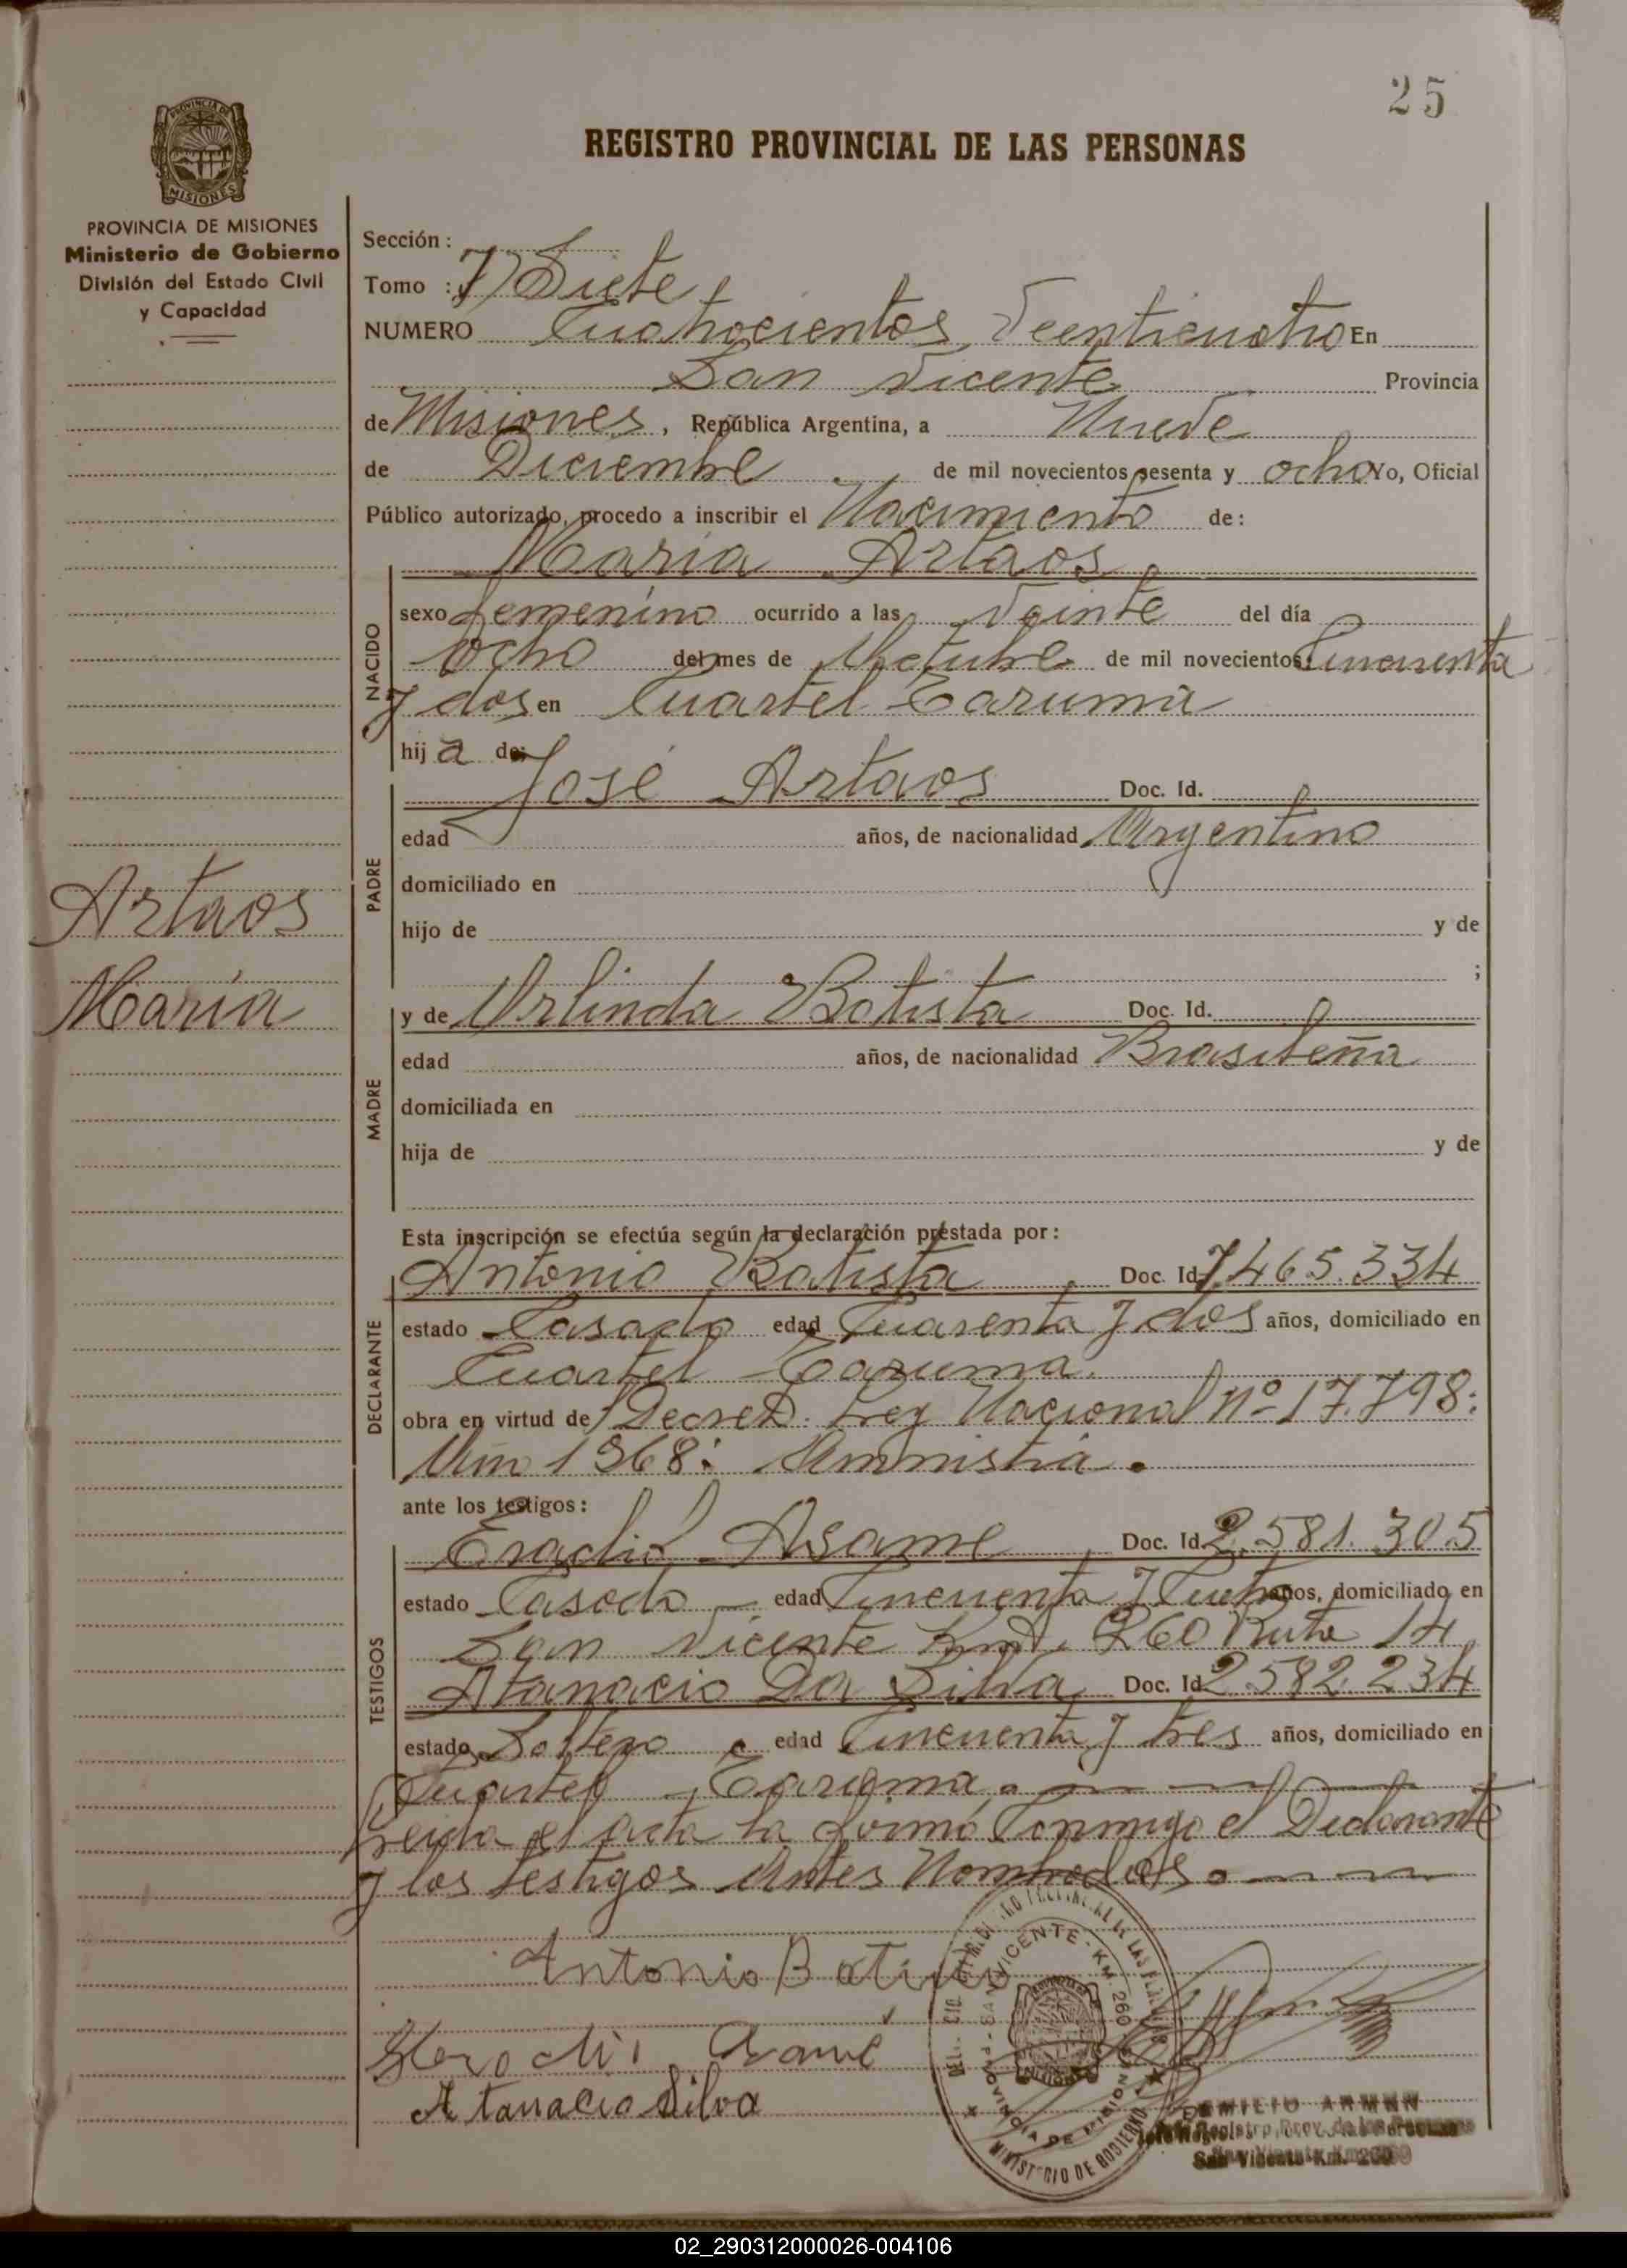 25
REGISTRO PROVINCIAL DE LAS PERSONAS
PROVINCIA DE MISIONES
MISIONES
PROVINCIA DE MISIONES
Ministerio de Gobierno
División del Estado Civil
y Capacidad
Sección:
Tomo : 7) Siete
NUMERO Cuatrocientos Veenticuatro En
San Vicente Provincia
de Misiones, República Argentina, a Nueve
de Diciembre de mil novecientos sesenta y ocho Yo, Oficial
Público autorizado, procedo a inscribir el Nacimiento de:
Maria Artaos
NACIDO
sexo femenino ocurrido a las Veinte del día
Ocho del mes de Octubre de mil novecientos Cincuenta
y dos en Cuartel Taruma
hij a de:
José Artaos Doc. Id.
PADRE
edad años, de nacionalidad Argentino
domiciliado en
hijo de y de
;
Artaos
Maria
y de Orlinda Batista Doc. Id.
MADRE
edad años, de nacionalidad Brasileña
domiciliada en
hija de y de
Esta inscripción se efectúa según la declaración prestada por:
Antonio Batista Doc. Id 7.465.334
DECLARANTE
estado Casado edad Cuarenta y dos años, domiciliado en
Cuartel Taruma.
obra en virtud de Decreto. Ley Nacional nº 17.798:
1968: Amnistia.
ante los testigos:
Eradio Asame Doc. Id. 2.581.305
TESTIGOS
estado Casado edad Cincuenta y años, domiciliado en
San Vicente 260 Ruta 14
Atanacio Da Silva Doc. Id 2.582.234
estado Soltero edad Cincuenta y tres años, domiciliado en
Cuartel Taruma.
Leida el acta la firmó Conmigo el Declarante
y los testigos Antes Nombrados
Antonio Batista
Asamé
Atanacio Silva
SAN VICENTE - KM. 260
PROVINCIA DE MISIONES
MINISTERIO DE GOBIERNO
Registro Prov. de las Personas
San Vicente Km. 260
02_290312000026-004106